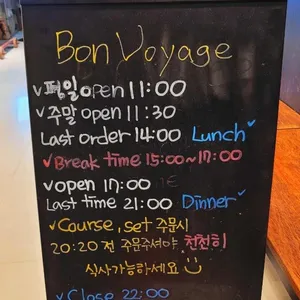 Bon Voyage
✓평일open 11:00
✓주말 open 11:30
Last order 14:00 Lunch✓
✓Break time 15:00~17:00
✓open 17:00
Last time 21:00 Dinner✓
✓Course, set 주문시
20:20 전 주문주셔야 천천히
식사가능하세요
✓Close 22:00